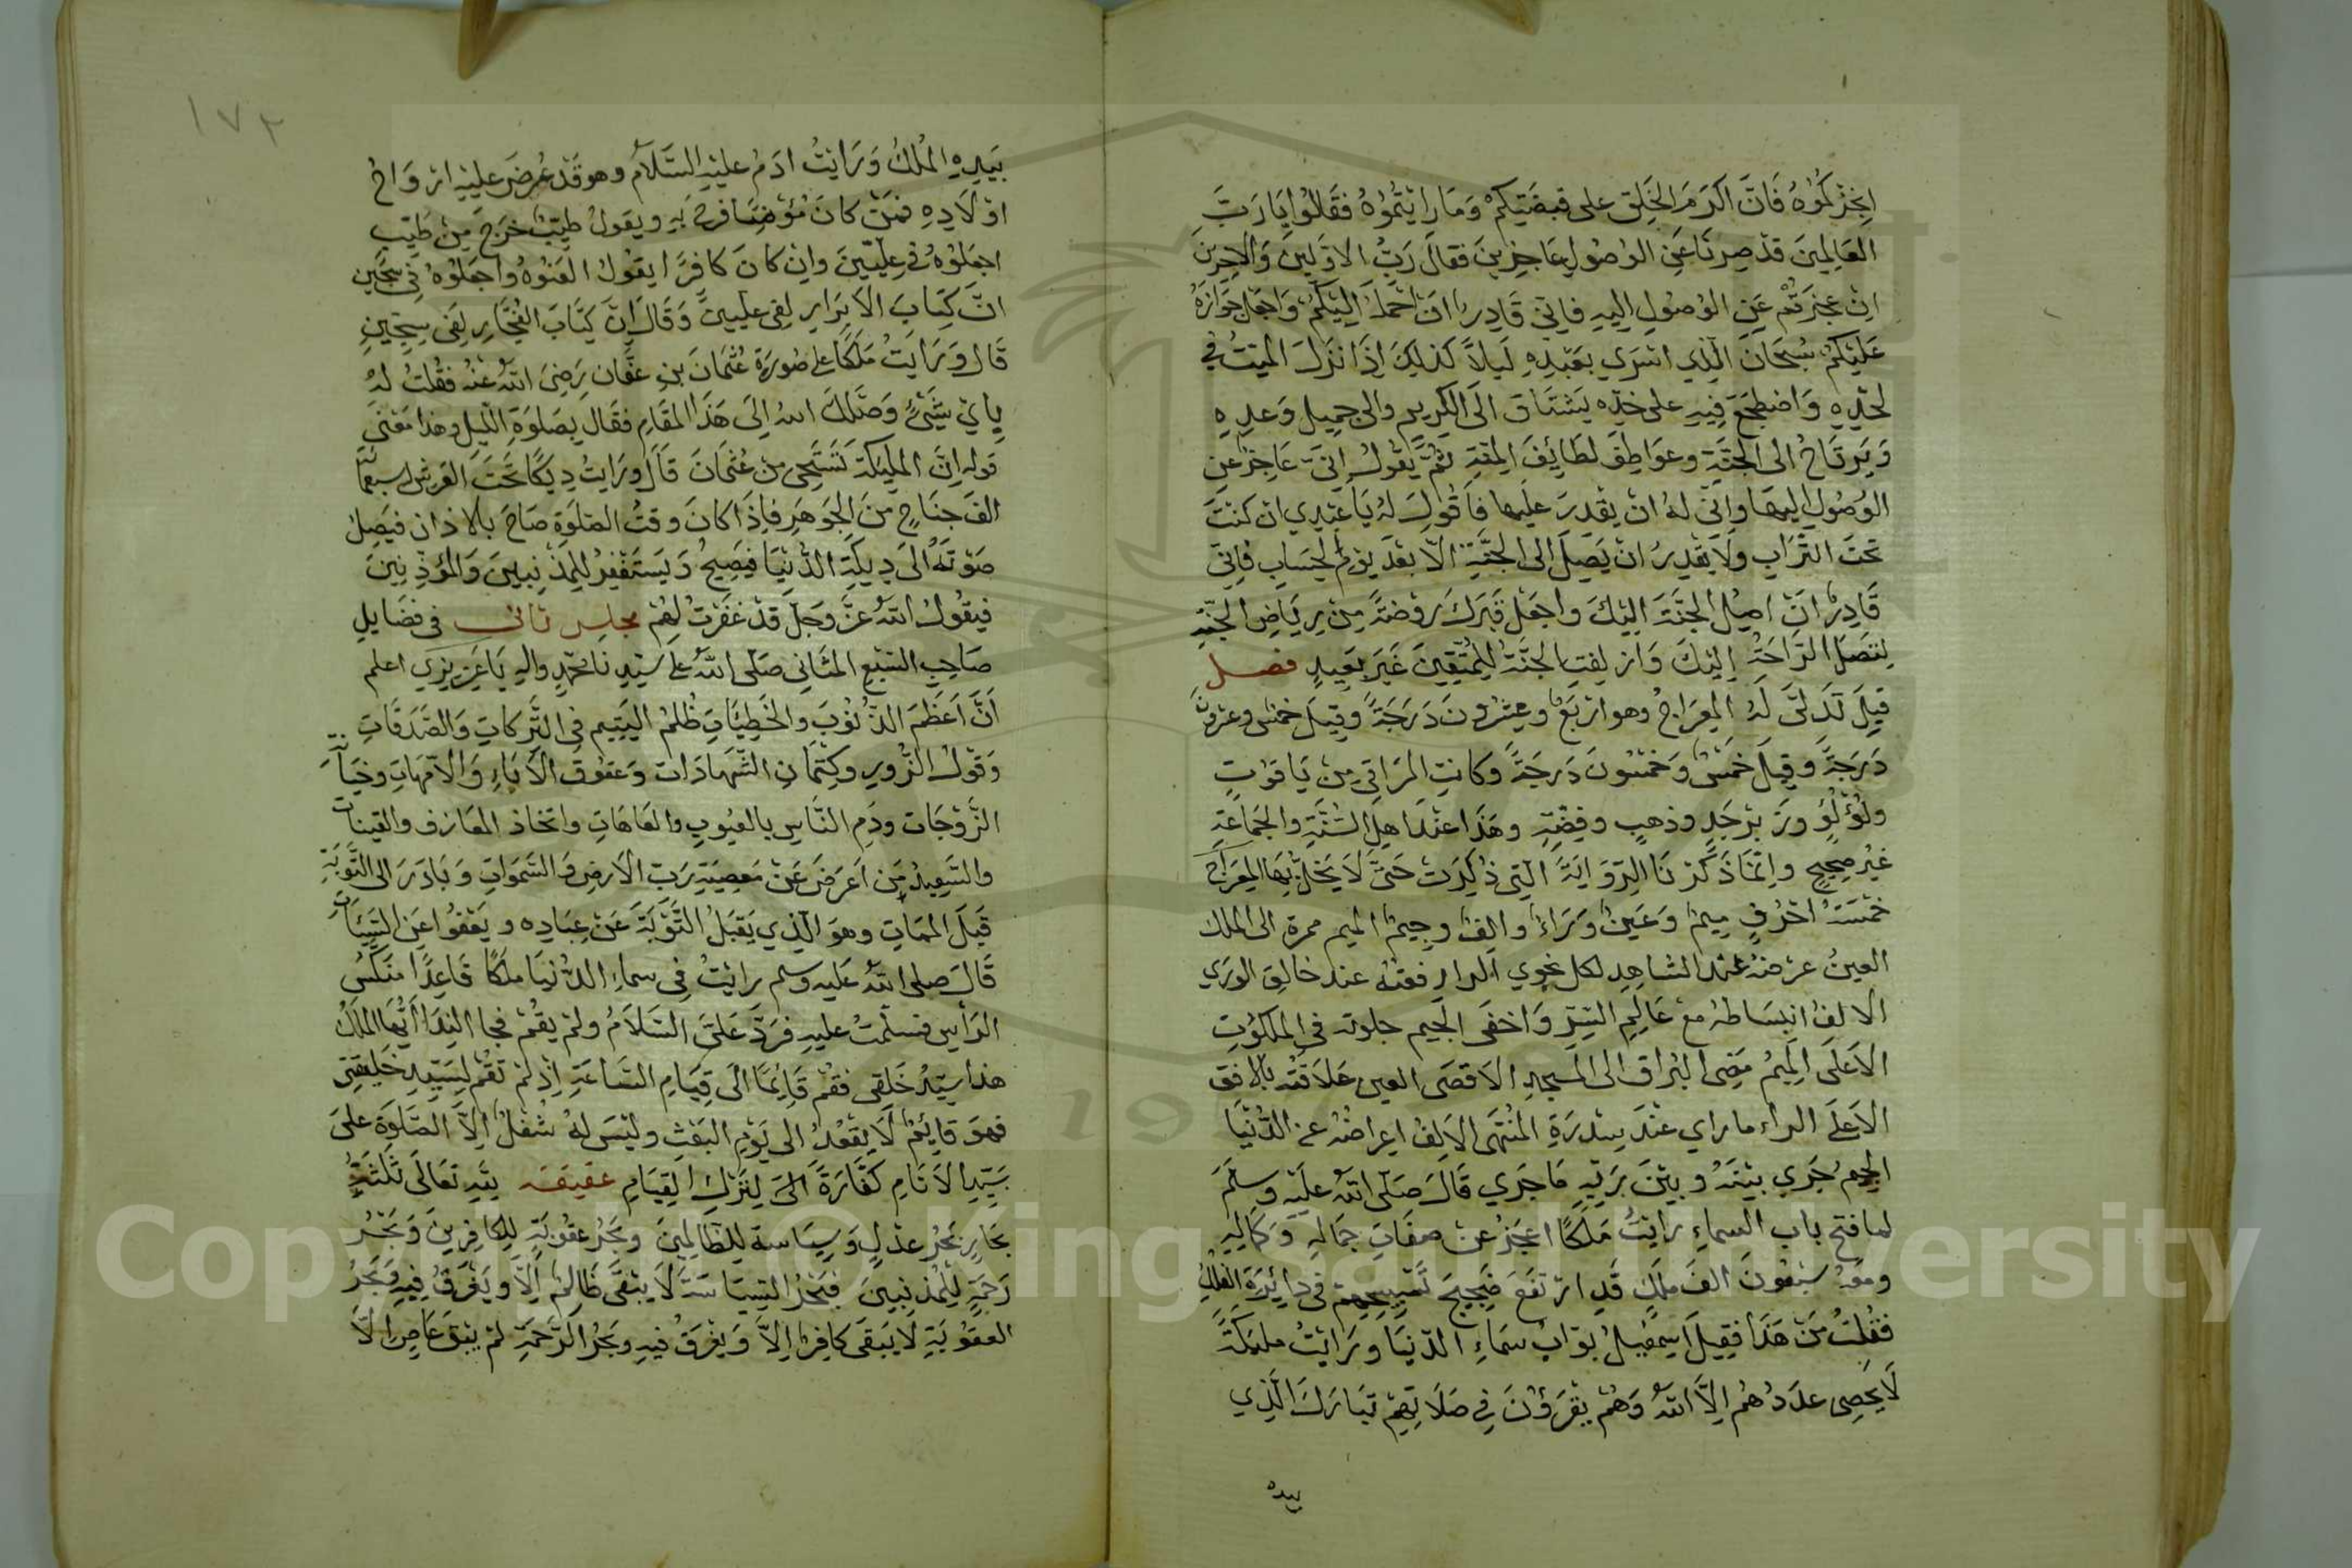 اِنجزتموُهُ فَاِنَّ اكرَمَ الخَلِق على قبضَتِكمْ وَمَا رَايتُمُوْهُ فقَالوُا يَا رَبَّ
العَالمِينَ قدْ صِرنَا عَنِ الوُصُولِ عَاجِزينَ فقالَ رَبُّ الاوَّلينَ وَالآخِرِينَ
اِن عجَزتُمْ عَنِ الوُصُولِ اليهِ فاِنّي قَادِرٌ اَنْ احْمِلَهُ اِلَيْكُمْ وَاجعَلَ جَوَازَهُ
عَلَيْكمْ سُبْحَانَ الّذِي اسْرَي بعَبْدِهِ لَيلاً كَذلِكَ اِذَا نزَلَ الميّتُ في
لحْدِهِ وَاضطجَعَ فِيهِ على خدّه يَشتَاقُ الَى الكَريمِ والى جميلِ وَعدِهِ
وَيَرتَاحُ الى الجَنَّةِ وعوَاطِفَ لطَائِفَ المِنّةِ ثُمَّ يَقوُلُ اِنّي عَاجِزٌ عنِ
الوُصُولِ اليهَا وَاَنّى لهُ انْ يقْدِرَ عليهَا فاَقُولُ لهُ يَا عَبْدِي ان كنْتَ
تحتَ التُّرَابِ وَلَا تقْدِرُ انْ تَصِلَ الى الجنَّةِ الّا بعْدَ يوْمِ الحِسَابِ فَاِنّي
قَادِرٌ اَنْ اصِلَ الجنَّةَ اليْكَ وَاجعَل قَبرَكَ رَوْضَةً مِنْ رِيَاضِ الجَنّةِ
لِتَصِلَ الرَّاحَةُ اِلَيْكَ وَازلِفَتِ الجنَّةُ لِلْمُتّقِينَ غَيرَ بعَيدٍ فصل
قِيلَ تَدَلّىَ لَهُ المِعرَاجُ وهو اربَعٌ وعِشرُونَ دَرَجَةً وَقِيلَ خمْسٌ وعِشرُونَ
دَرَجَةً وَقِيلَ خَمسٌ وَخمسُونَ دَرجَةً وَكانتِ المرَاقِي مِنْ يَاقوُتٍ
ولُؤلُؤٍ وزَبَرْجَدٍ وَذهبٍ وفِضّةٍ وهَذَا عنْدَ اهلِ السُّنَّةِ والجَمَاعَةِ
غيْرُ صحيحٍ واِنّمَا ذكَرْنَا الرِّوَايَةَ الّتِي ذُكِرَت حَتّىَ لَا يَخلُ بِهَا المِعرَاجُ
خمسَةُ احْرُفٍ مِيمٌ وَعَينٌ وَرَاءٌ والِفٌ وجِيمٌ الميم ممرة الى الملك
العينُ عرضهُ عندَ الشاهِدِ لكل نجوي الرا رفعتهُ عند خالِقِ الورَي
الالفُ انبسَاطهُ معَ عَالِمِ السِّرِّ وَاخفَى الجيم جلوته فِي المَلكُوُتِ
الاعَلَى المِيمُ مَضِى البُرَاقِ الى المسْجدِ الاقصَى العين عَلَاقتُه بالافقِ
الاَعلَى الراء ما راي عنْدَ سِدْرَةِ المُنْتهَى الالِفُ اعِرَاضُهُ عنِ الدُّنْيَا
الجيم جَرَي بَيْنَهُ وبينَ ربِّهِ مَا جَرَي قَالَ صَلّى اللهُ عليْهِ وسلّمَ
لما فتح باب السماءِ رايْتُ مَلَكًا اعْجَزُ عنْ صفَاتِ جمَالهِ وَكَمَالِهِ
ومعَهُ سبعُونَ الفَ ملَكٍ قدِ ارتفَعَ ضَجِيجُ تَسْبِيحِهِمْ في دائِرَةِ الفلَكِ
فقلتُ مَنْ هَذَا فقِيلَ اسمعيلُ بوّابُ سمَاءِ الدّنيَا ورَايْتُ ملئكَةً
لَا يحْصِى عدَدَهُمْ اِلّا اللهُ وَهُمْ يقرَؤُنَ فِي صَلَاتِهِمْ تبَارَكَ الَّذِي
بيده
١٧٢
بيَدِهِ المُلكُ وَرَايْتُ ادَمَ عليْهِ السَّلَامُ وهو قَدْ عُرِضَ عليْهِ ارْوَاحُ
اوْلَادِهِ فمنْ كانَ مُؤمِنًا فرِحَ بهِ ويقوُلُ طيّبٌ خرَجَ مِنْ طيِّبٍ
اجعَلوُهُ في عِلّيّينَ وانِ كانَ كافِرًا يقوُلُ العَنوُهُ واجعَلوُهُ في سجّينٍ
انَّ كِتَابَ الابْرَارِ لَفِي عليّينَ وَقَالَ اِنَّ كِتَابَ الفُجَّارِ لَفِي سِجّينٍ
قَالَ وَرَايْتُ مَلَكًا على صُورَةِ عُثمَانَ بنِ عفّانَ رَضِيَ اللهُ عنْهُ فقُلتُ لهُ
بِايّ شَيْئٍ وَصَلَكَ اللهُ الَى هَذَا المقَامِ فقَال بِصَلوَةِ اللّيلِ وهذا معْنَى
قولِهِ اِنَّ المَلئِكَةَ تَسْتَحي منْ عُثمَانَ قَالَ ورَايْتُ دِيكًا تحْتَ العَرشِ لهُ سبعمائة
الفَ جنَاحٍ منَ الجَوهَرِ فاِذَا كانَ وقتُ الصلوَةِ صَاحَ بالاذانِ فيَصِلُ
صَوتَهُ الَى دِيكَةِ الدُّنْيَا فيَصِيحُ وَيَستَغْفِرُ لِلمُذْنِبِينَ وَالمُؤذِّنِينَ
فيَقوُلُ اللهُ عزَّ وَجَلَّ قدْ غفَرْتُ لهُمْ مجلس ثاني في فضَايلِ
صَاحِبِ السّبْعِ المثَانِي صَلّى اللهُ على سيّدِنَا محمّدٍ والهِ يَا عَزِيزِي اعلم
اَنَّ اَعظَمَ الذّنُوْبَ والخَطِيَّاتِ ظُلمُ اليَتِيمِ فِي التَّرِكاتِ وَالصّدَقَاتِ
وَقَوْلُ الزُّورِ وكتْمَانِ الشّهادَات وَعقوُقُ الابَاءِ وَالامّهَاتِ وخيَانَةِ
الزّوْجَات وذَمِ النَّاسِ بالعيُوبِ والعَاهَاتِ واتخَاذ المعَازف والقينَات
والسّعِيدُ مَن اَعرَضَ عَنْ مَعصِيَةِ رَبِّ الارضِ وَالسّمَوَاتِ وَبَادَرَ الى التّوبَةِ
قَبلَ المَمَاتِ وهوَ الّذي يَقبَلُ التّوْبَةَ عَنْ عِبَادِه ويعْفُوا عَنِ السّيّئَاتِ
قَالَ صلى اللهُ عَليه وسلم رايْتُ في سماءِ الدّنيَا ملكًا قَاعِدًا منَكّسَ
الرَأسِ فسلّمْتُ عليهِ فرَدَّ علَيَّ السّلَامُ ولمْ يقُمْ فجا النِدَا اَيُّهَا الملَكُ
هذا سيّدُ خَلقِي فقُمْ قَائِمًا الَى قيَامِ السّاعَةِ اِذْ لمْ تقُمْ لِسَيّدِ خَليقتي
فهوَ قائِمٌ لَا يقعُدُ الى يَوْمِ البعْثِ وليْسَ لهُ شُغْلٌ اِلَّا الصّلوَة علىَ
سَيّدِ الانَامِ كفَّارَةً الَى لِتَرْكِ القِيَامِ عقيقه للهِ تعَالَى ثلثَةُ
بحَارٍ بَحْرُ عدْلٍ وَسِيَاسة لِلظّالِمِينَ وبَحْرُ عقُوبَةٍ لِلكَافِرِينَ وَبَحْرُ
رَحمَةٍ لِلمُذْنِبِينَ فبَحْرُ السّيَاسَةِ لَا يَبْقَى ظَالِمٌ اِلَّا ويَغْرَقُ فِيهِ وَبَحْرُ
العقوُبَةِ لَا يَبْقَى كافِرٌ اِلَّا وَيغْرَقُ فيهِ وبحرُ الرّحمَةِ لمْ يَبْقَ عَاصٍ اِلَّا
Copyright © King Saud University